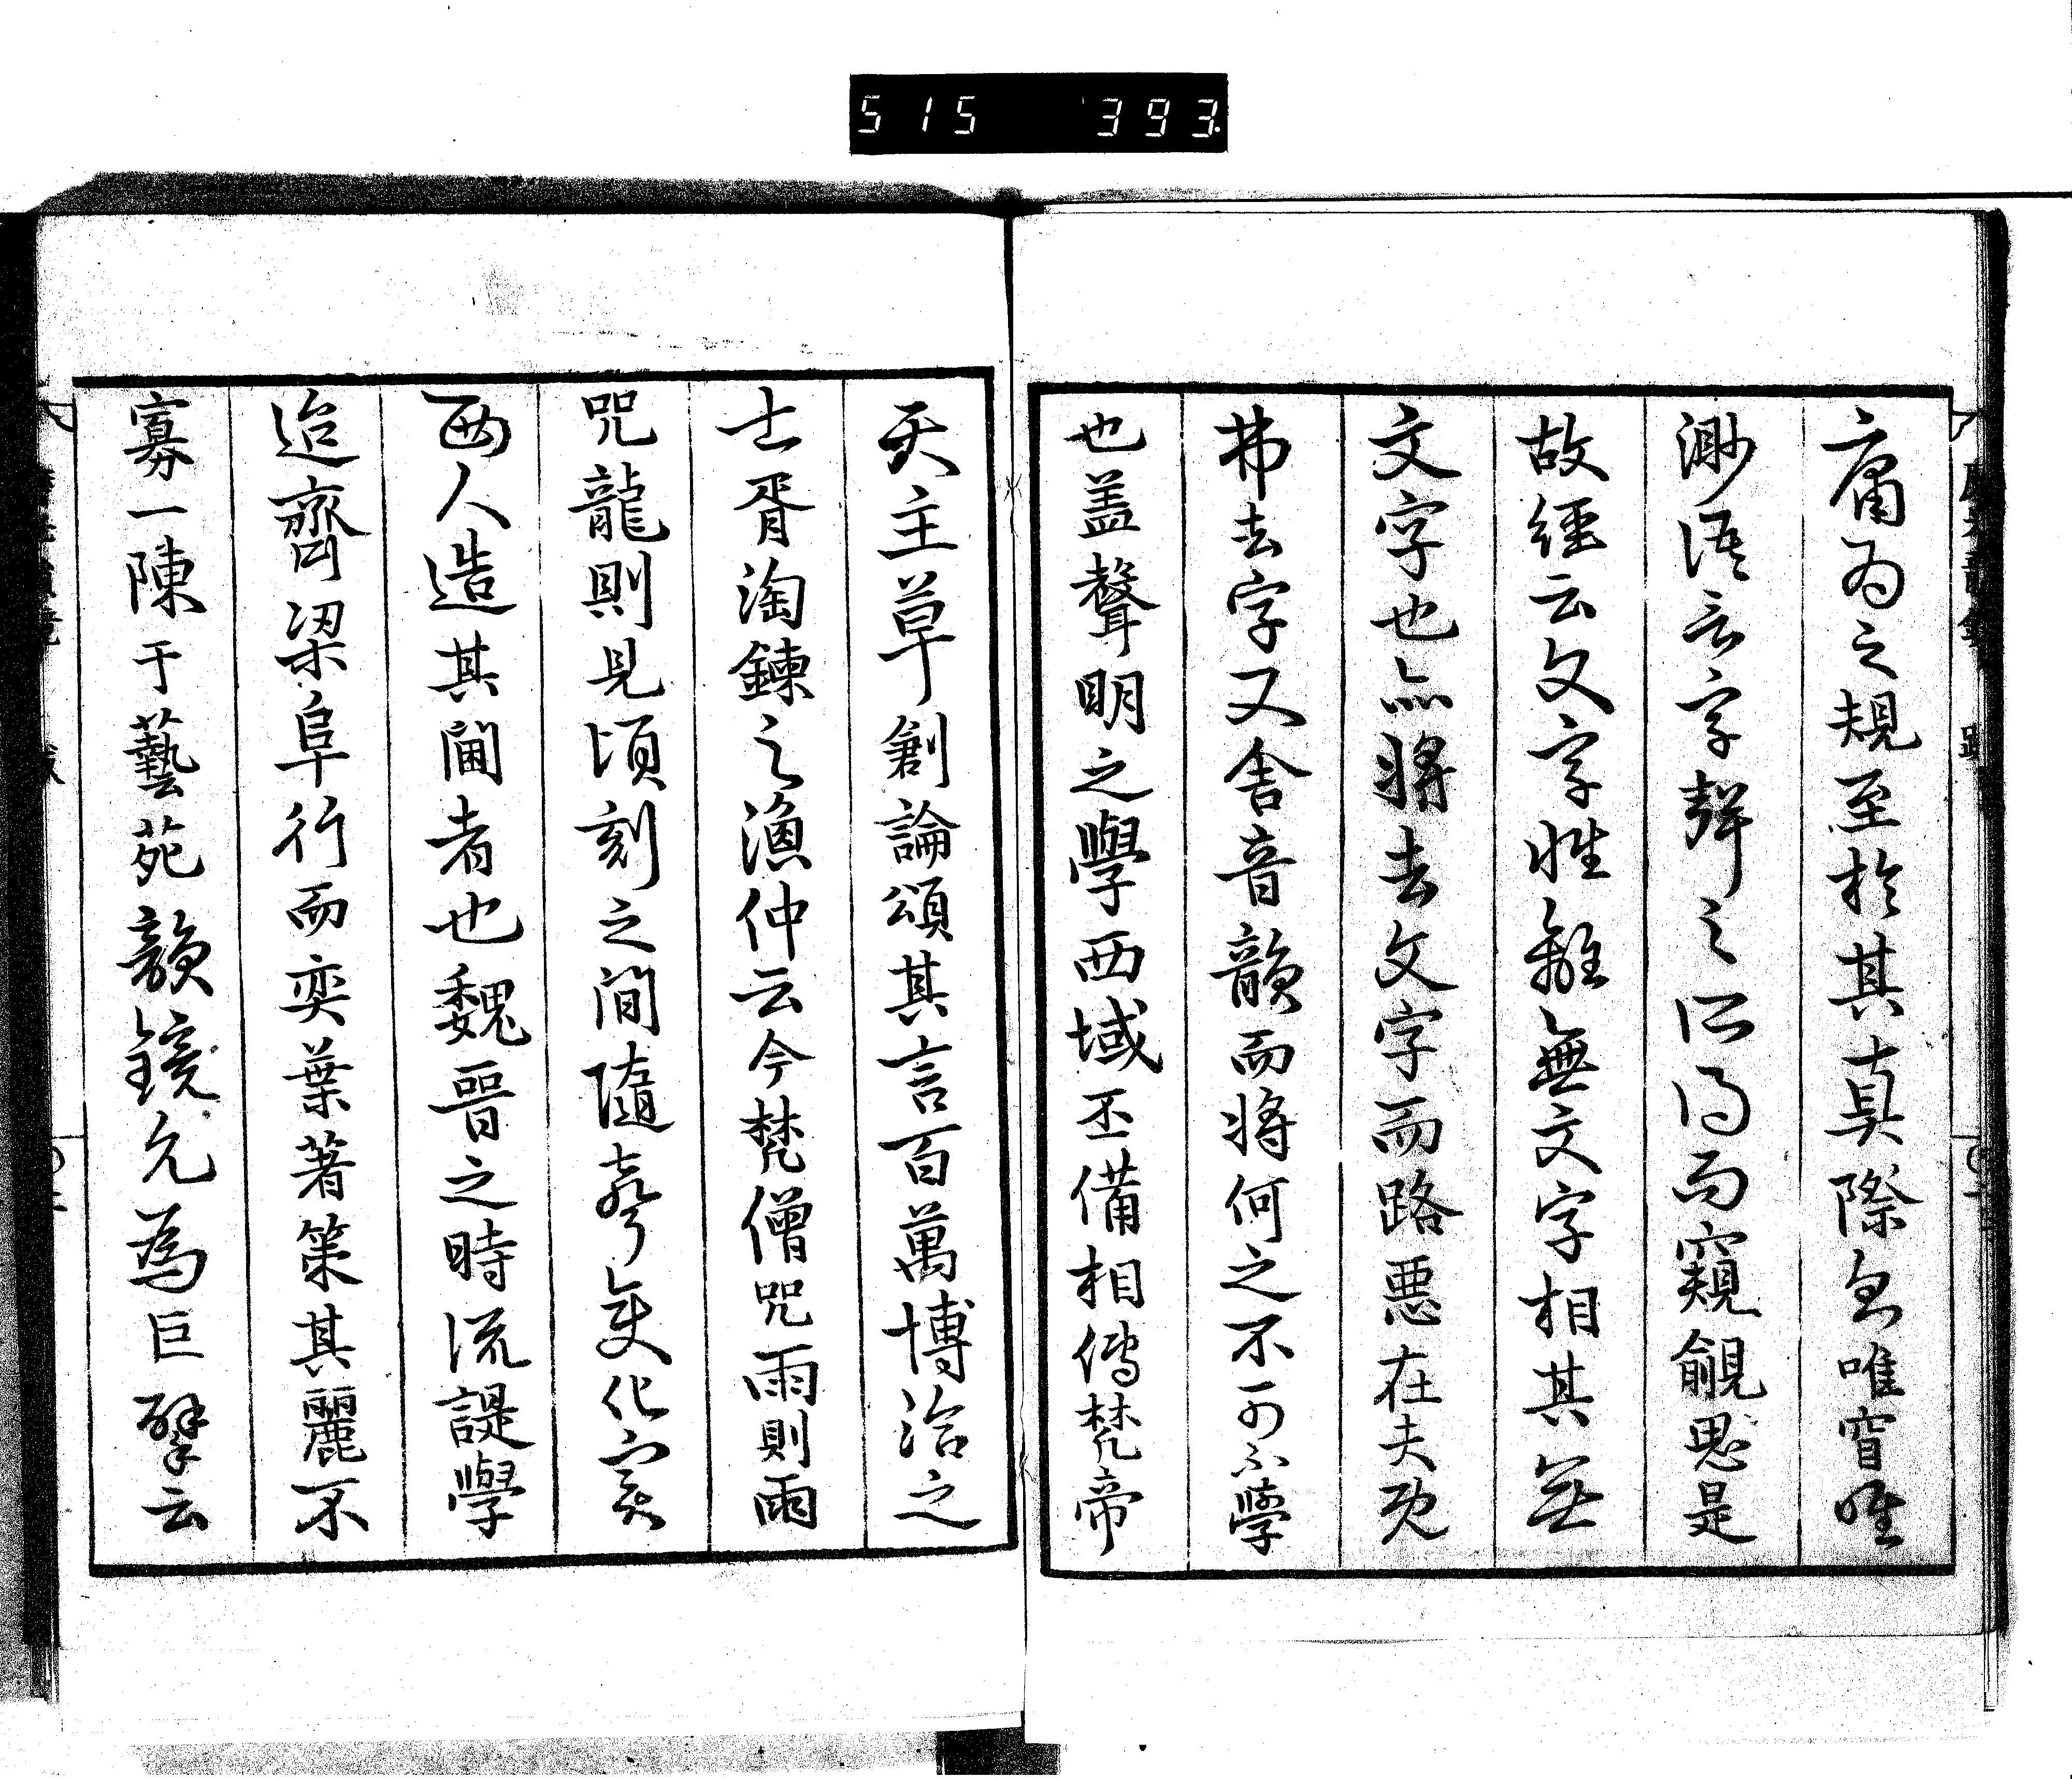 515 393
庸為之規至於其真際怱唯窅唯
渺語言字聲之所得而窺覦思是
故經云文字性離無文字相其無
文字也亦將去文字而路惡在夫既
弗去字又舍音韻而將何之不可不學
也盖聲明之學西域丕備相傳梵帝
天主草創論頌其言百萬博洽之
士胥淘鍊之漁仲云今梵僧咒雨則雨
咒龍則見頃刻之間隨聲變化寔
西人造其閫者也魏晋之時流諟學
迨齊梁阜行而奕葉著策其麗不
寡一陳于藝苑韻鏡允為巨擘云